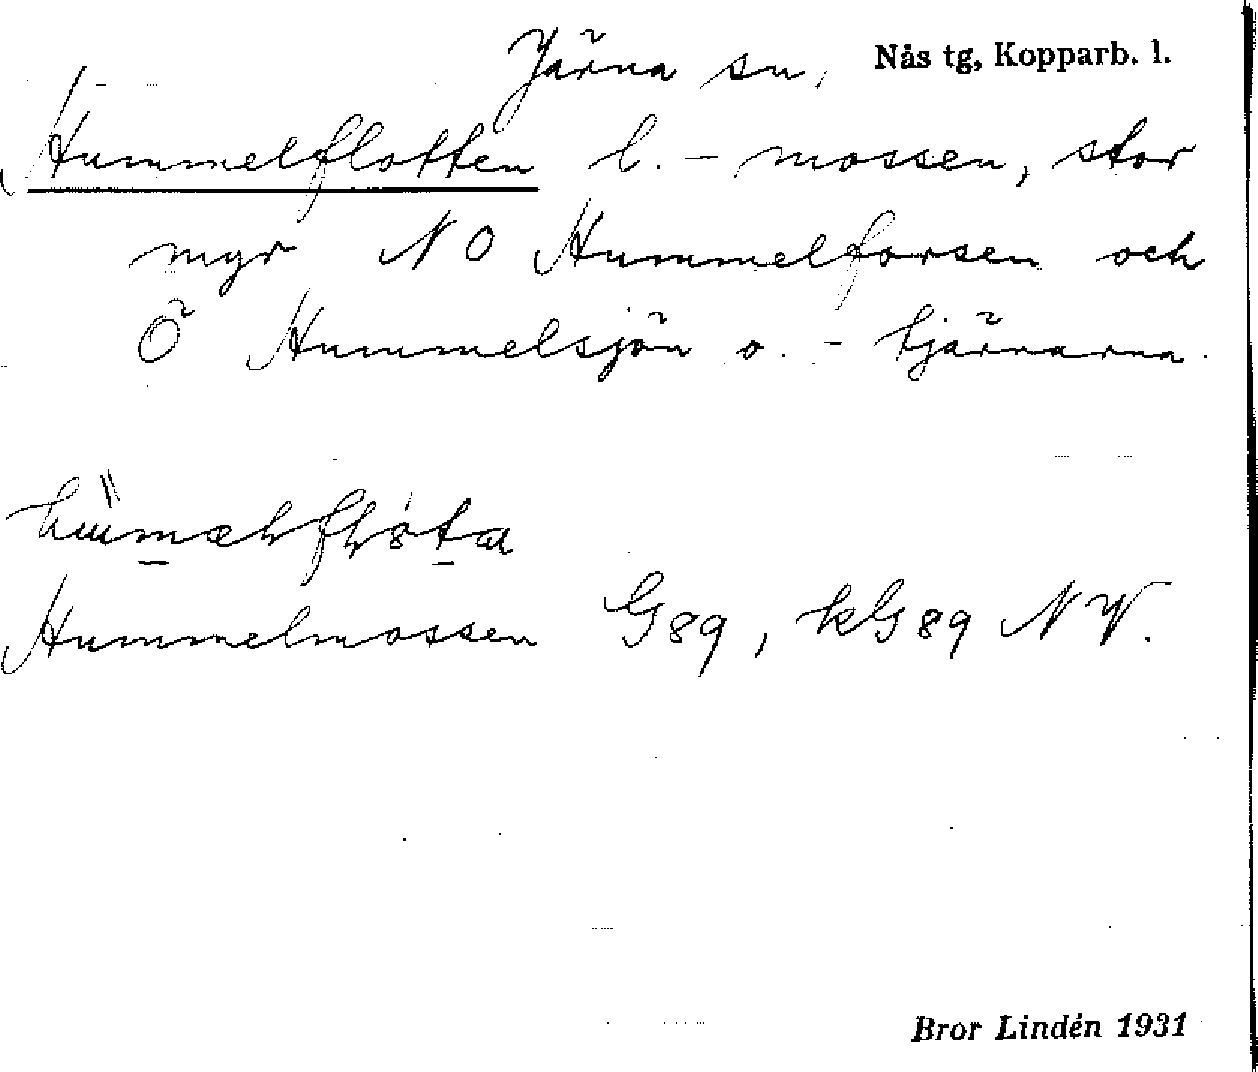 Järna sn, Nås tg, Kopparb. l.
Hummelflotten l. - mossen, stor
myr NO Hummelforsen och
Ö Hummelsjön o. - tjärnarna.
Hummelmossen G89, kG89 NV.
Bror Lindén 1931